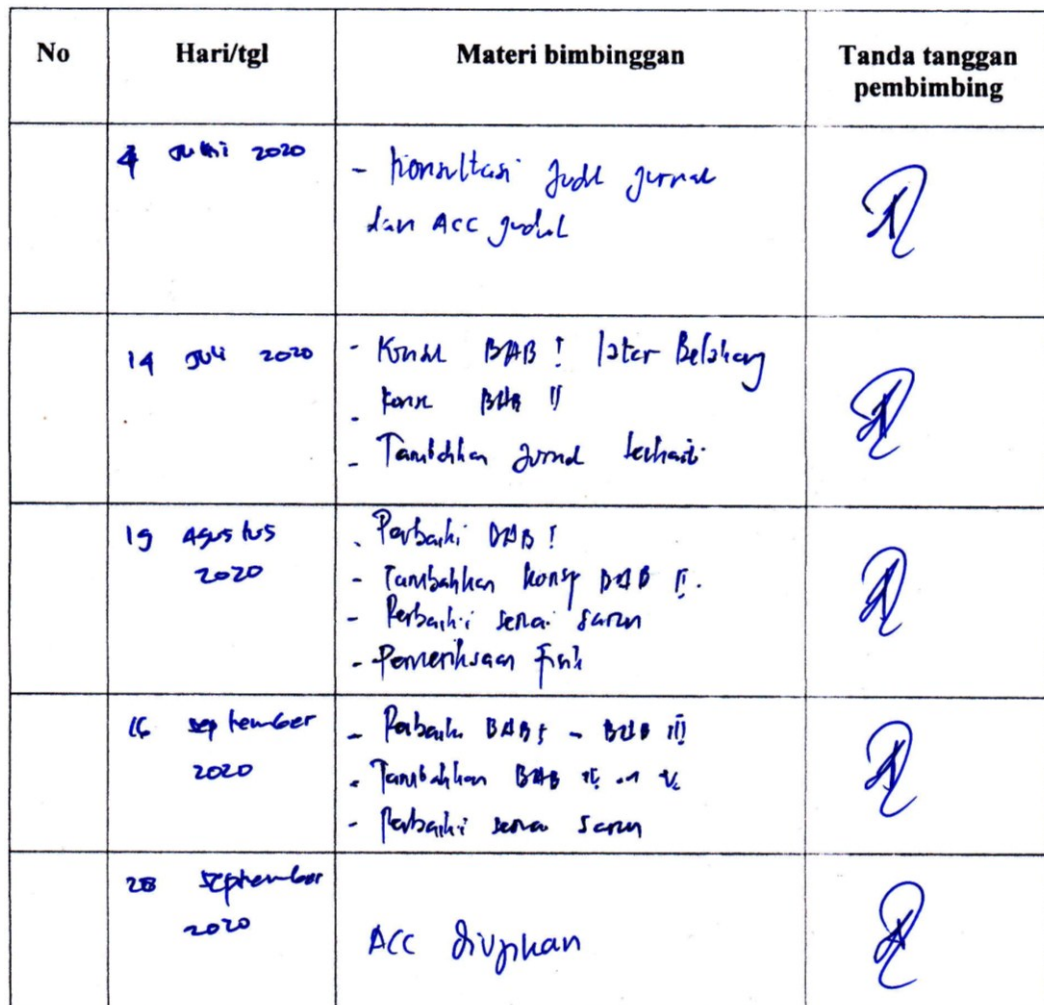 No Hari/tgl Materi bimbinggan Tanda tanggan
pembimbing
4 Juni 2020
- Konsultasi Judul jurnal
dan ACC judul
14 Juli 2020
- Konsul BAB I latar Belakang
- Konsul BAB II
- Tambahkan Jurnal terkait
19 Agustus
2020
- Perbaiki BAB I
- Tambahkan konsep BAB II.
- Perbaiki sesuai saran
- Pemeriksaan Fisik
16 september
2020
- Perbaiki BAB I - BAB III
- Tambahkan BAB V
- Perbaiki sesuai saran
28 September
2020
ACC diujikan